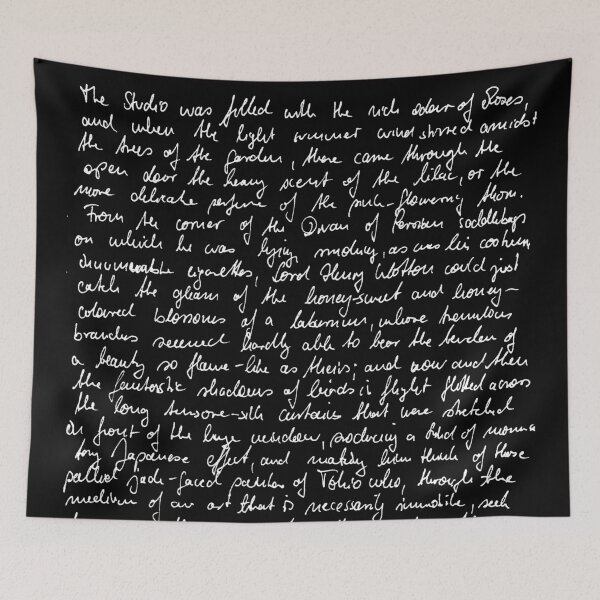 The Studio was filled with the rich odour of Roses,
and when the light summer wind stirred amidst
the trees of the garden, there came through the
open door the heavy scent of the lilac, or the
more delicate perfume of the pink-flowering thorn.
From the corner of the Divan of Persian saddlebags
on which he was lying, smoking, as was his custom,
innumerable cigarettes, Lord Henry Wotton could just
catch the gleam of the honey-sweet and honey-
coloured blossoms of a laburnum, whose tremulous
branches seemed hardly able to bear the burden of
a beauty so flame-like as theirs; and now and then
the fantastic shadows of birds in flight flitted across
the long tussore-silk curtains that were stretched
in front of the huge window, producing a kind of momen
tary Japanese effect, and making him think of those
pallid jade-faced painters of Tokio who, through the
medium of an art that is necessarily immobile, seek